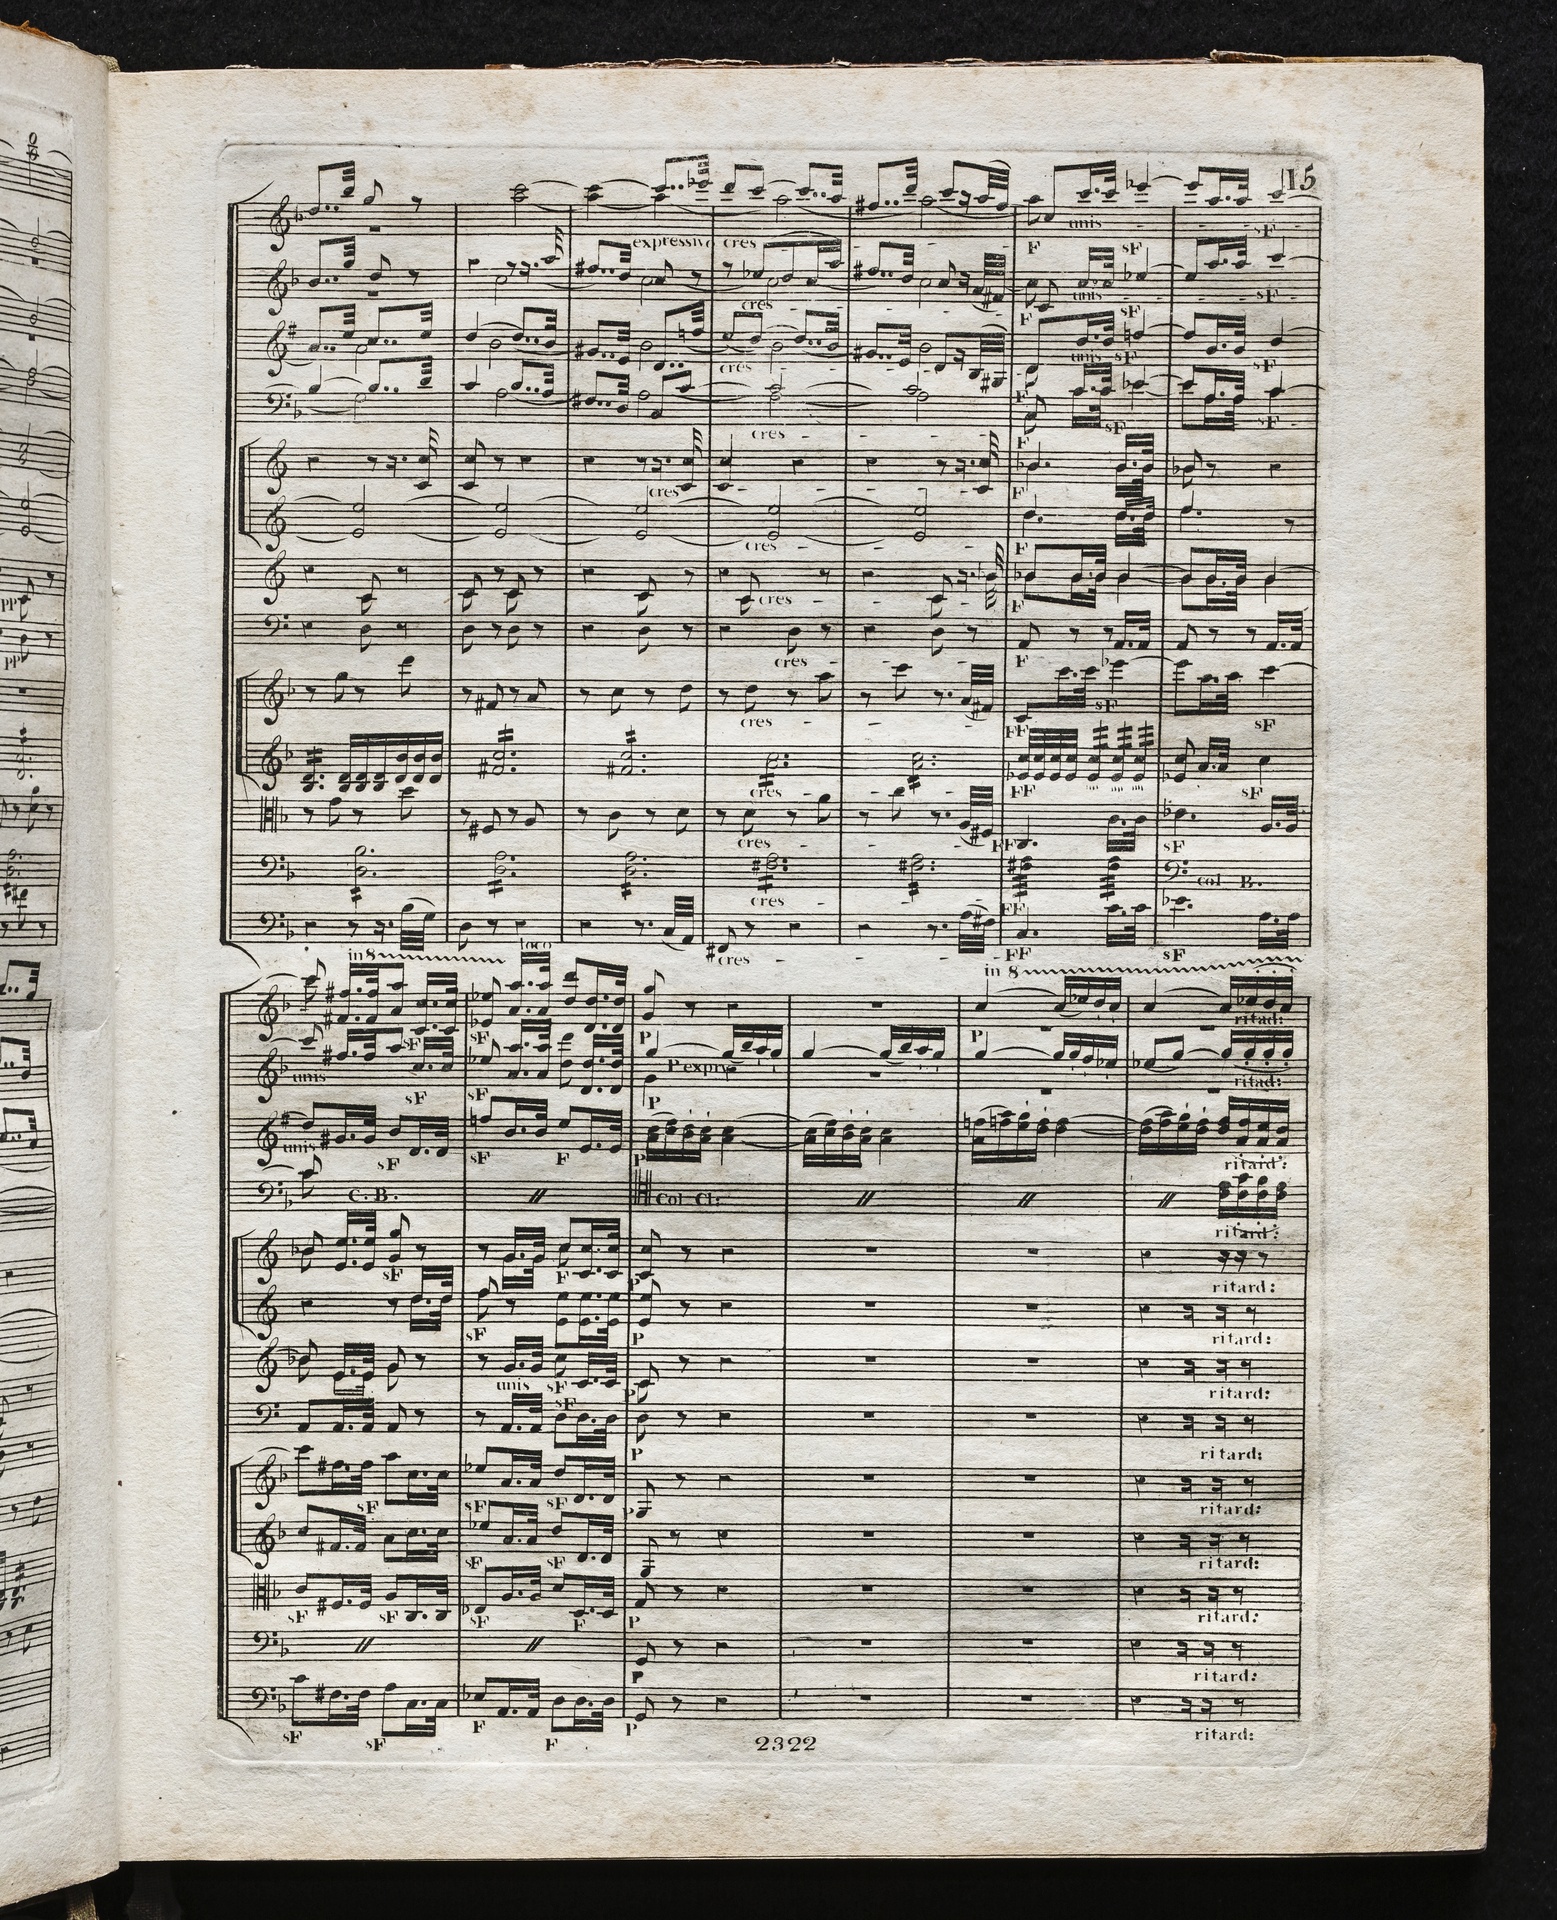 15
unis
sF
expressivo cres
F
sF
cres
unis
F
sF
sF
cres
unis
sF
sF
F
cres
sF
sF
F
cres
F
cres
F
cres
F
cres
F
pp
pp
cres
sF
sF
FF
cres
FF
sF
cres
FF
sF
cres
FF
col B.
cres
FF
sF
in 8
loco
in 8
sF
sF
P
P
ritad:
unis
P expr
sF
sF
P
ritad:
unis
sF
sF
F
P
ritard:
C. B.
Col Cl:
ritard:
sF
F
P
ritard:
sF
P
ritard:
unis
sF
P
ritard:
sF
P
ritard:
sF
sF
sF
P
ritard:
sF
sF
ritard:
sF
sF
sF
F
P
ritard:
P
ritard:
sF
sF
F
F
P
ritard:
2322